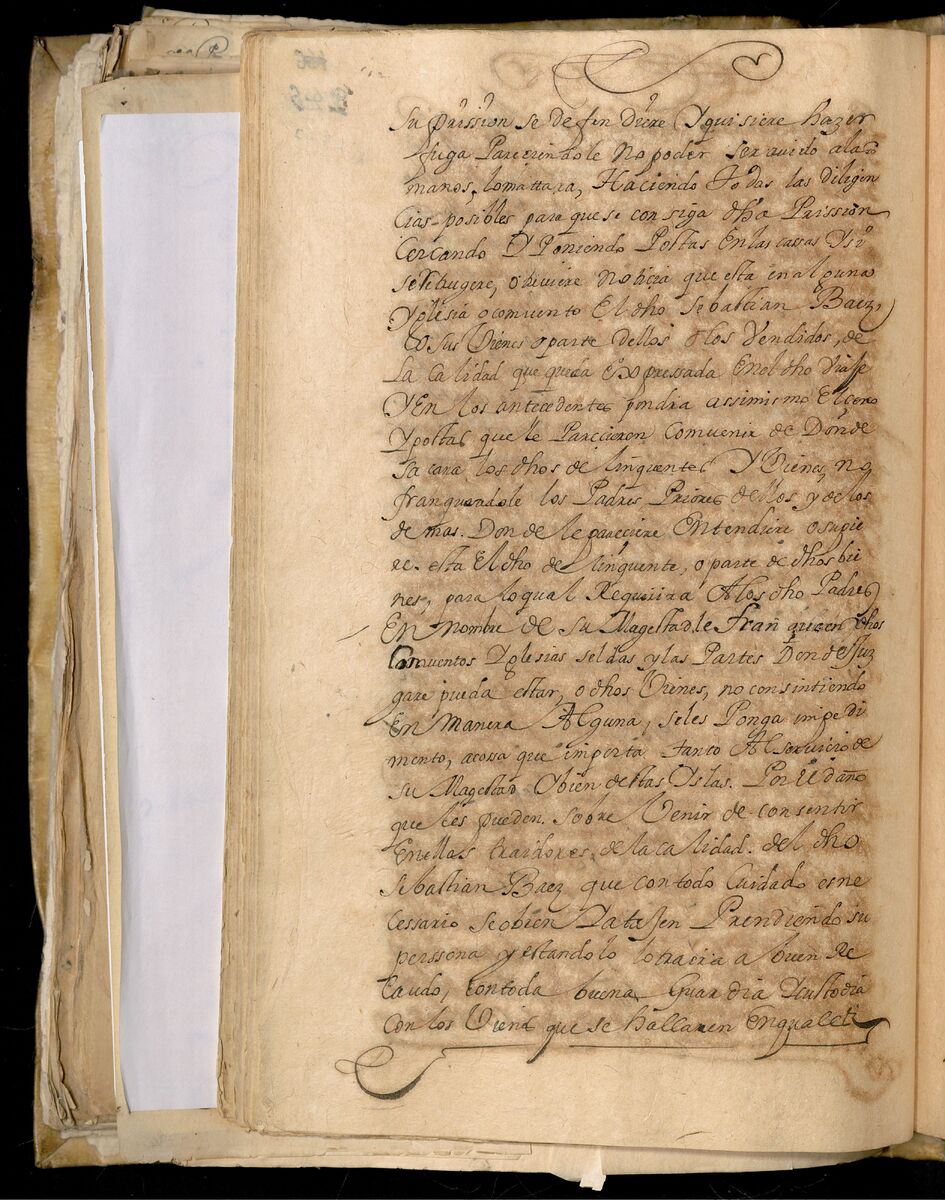 su prission se defindiere Y quisiere hazer
fuga Pareziendole no poder ser auido a las
manos, lo mattara, Haciendo Todas las diligen
cias posibles para que se consiga dha Prission
Cercando Y Poniendo Postas en las cassas Y si
se Refugere, o tuviere noticia que esta en alguna
Yglesia o comuento El dho Sebastian Baez,
o sus Vienes o parte dellos o los Vendidos, de
La Calidad que queda Expressada En el dho Viaje
Y En los antecedentes pondra assimismo El cerco
Y postas que le Parecieren comvenir de Donde
sacara los dhos delinquentes Y Vienes, no
franqueandole los Padres Priores dellos y de los
demas. Donde le pareciere Entendiere o supie
re. esta El dho delinquente, o parte de dhos bie
nes, para lo qual Requerira A los dho Padres
En nombre de su Magestad le franqueen dhos
Comuentos Yglesias seldas y las Partes Donde Juz
gare pueda estar, o dhos Vienes, no consintiendo
En manera Alguna, se les Ponga impedi
mento, a cossa que importa tanto Al seruicio de
su Magestad Y bien destas Yslas. Por El daño
que les pueden. sobre Venir de consentir
En ellas traidores, de la calidad. del dho
Sebastian Baez que con todo Cuidado es ne
cessario se obien Y atajen Prendiendo su
perssona y estandolo lo traera a buen Re
caudo, con toda buena Guardia Y custodia
Con los Vienes que se hallaren En qualesq